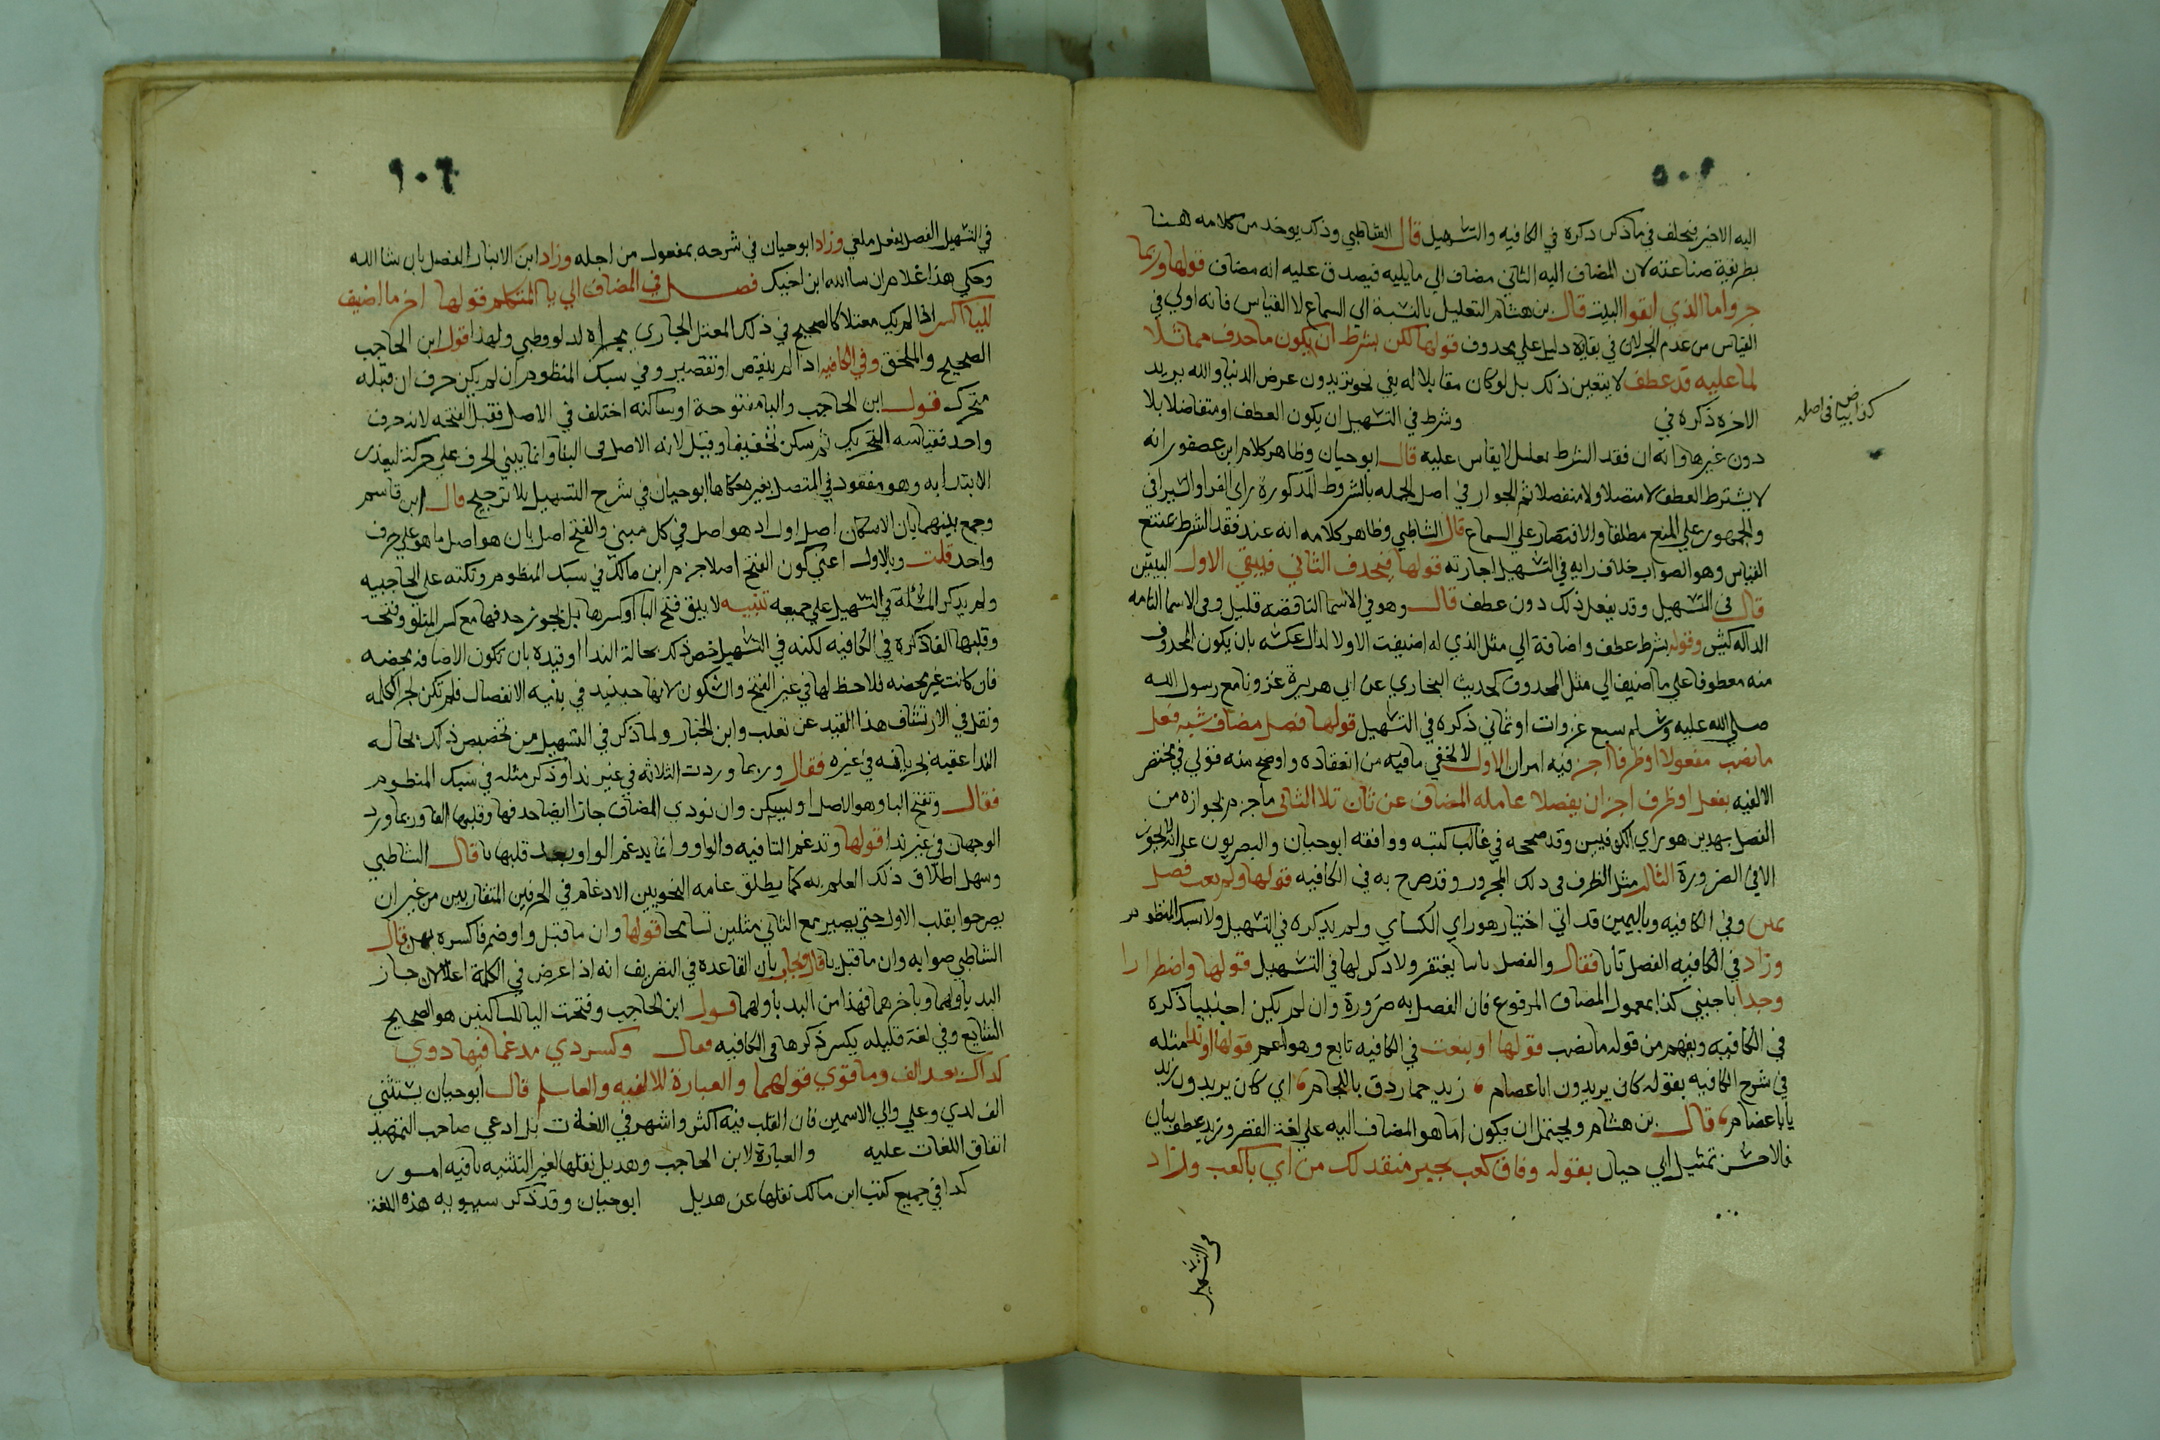 ٥٠٩
اليه الاخير فيخلف في ما ذكر ذكره في الكافيه والتسهيل قال الشاطبي وذلك يوخد من كلامه هنا
بطريقة صناعته لان المضاف اليه الثاني مضاف الي ما يليه فيصدق عليه انه مضاف قولها وربما
جر واما الذي ابقوا البيت قال بن هشام التعليل بالنسبة الي السماع لا القياس فانه اولي في
القياس من عدم الجر لان في بقايه دليل علي محدوف قولها لكن بشرط ان يكون ما حدف مماثلا
لما عليه قد عطف لا يتعين ذلك بل لو كان مقابلا له يفي نحو تريدون عرض الدنيا والله يريد
الاخره ذكره في وشرط في التسهيل ان يكون العطف او متفاضلا بلا
كذا بياض في اصله
دون غيرها وانه ان فقد الشرط لا يقاس عليه قال ابو حيان وظاهر كلام ابن عصفور انه
لا يشترط العطف لا متصلا ولا منفصلا ثم الجوار في اصل الجمله بالشروط المدكورة راي الفرا والسيرافي
والجمهور علي المنع مطلقا والاقتصار علي السماع قال الشاطبي وظاهر كلامه انه عند فقد الشرط يمتنع
القياس وهو الصواب خلاف رايه في التسهيل اجازته قولها فيحدف الثاني فيبقي الاول البيتين
قال في التسهيل وقد يفعل ذلك دون عطف قال وهو في الاسما الناقصه قليل وفي الاسما التامه
الداله كثير وقوله بشرط عطف واضافة الي مثل الذي له اضيفت الاولا لذلك عكسه بان يكون المحدوف
منه معطوفا علي ما اضيف الي مثل المحدوف كحديث البخاري عن ابي هريرة غزونا مع رسول الله
صلي الله عليه وسلم سبع غزوات او ثماني ذكره في التسهيل قولها فصل مضاف شبه فعل
ما نصب مفعولا او ظرفا اجز فيه امران الاول لا يخفي ما فيه من انعقاده واوضح منه قولي في مختصر
الالفيه بفعل او ظرف اجز ان يفصلا عامله المضاف عن ثان تلا الثاني ما جزم بجوازه من
الفصل بهدين هو راي الكوفيين وقد صححه في غالب كتبه ووافقه ابو حيان والبصريون علي انه لا يجوز
الا في الضرورة الثالث مثل الظرف في ذلك المجرور وقد صرح به في الكافيه قولها ولم يعب فصل
يمين وفي الكافيه وباليمين قد اتي اختيار هو راي الكساي ولم يدكره في التسهيل ولا سبك المنظوم
وزاد في الكافيه الفصل باما فقال والفصل باما يغتفر ولا دكر لها في التسهيل قولها واضطرارا
وجدا باجنبي كذا بمعمول المضاف المرفوع فان الفصل به ضرورة وان لم يكن اجنبيا ذكره
في الكافيه ويفهم من قوله ما نصب قولها او بنعت في الكافيه تابع وهو اعم قولها او ندا مثله
في شرح الكافيه بقوله كان يريدون ابا عصام زيد حمار دق باللجام اي كان يريدون زيد
يا ابا عصام قال بن هشام ويحتمل ان يكون ابا هو المضاف اليه علي لغة القصر وزيد عطف بيان
فالاحسن تمثيل ابي حيان بقوله وفاق كعب بجير منقد لك من اي يا كعب وزاد
في التسهيل
٦٠٩
في التسهيل الفصل بفعل ملغي وزاد ابو حيان في شرحه بمفعول من اجله وزاد ابن الانباري الفصل بان شا الله
وحكي هذا غلام ان شا الله ابن اخيك فصل في المضاف الي يا المتكلم قولها اخر ما اضيف
لليا اكسر اذا لم يك معتلا كالصحيح في ذلك المعتل الجاري مجراه لدلو وظبي ولهذا قول ابن الحاجب
الصحيح والملحق وفي الكافيه اذا لم ينقص او تقصير وفي سبك المنظوم ان لم يكن حرف ان قبله
متحرك قول ابن الحاجب واليا مفتوحة او ساكنه اختلف في الاصل فقيل الفتحه لانه حرف
واحد فقياسه التحريك ثم سكن تخفيفا وقيل لانه الاصل في البنا وانما يبني الحرف علي حركة ليعذر
الابتدا به وهو مفقود في المتصل بغير حكاها ابو حيان في شرح التسهيل بلا ترجيح قال ابن قاسم
وجمع بينهما بان الاسكان اصل اول اد هو اصل في كل مبني والفتح اصل بان هو اصل ما هو علي حرف
واحد قلت وبالاول اعني كون الفتح اصلا جزم ابن مالك في سبك المنظوم ونكته علي الحاجبيه
ولم يدكر المسئلة في التسهيل علي جميعه تنبيه لا يبق فتح اليا او كسرها بل يجوز حدفها مع كسر المتلو وفتحه
وقلبها الفا ذكره في الكافيه لكنه في التسهيل خص ذلك بحالة الندا او قيده بان تكون الاضافه محضه
فان كانت غير محضه فلا حظ لها في غير الفتح والسكون لانها حينيد في بنيه الانفصال فلم تكن لجزا كلمه
ونقل في الارتشاف هذا القيد عن ثعلب وابن الخباز ولما ذكر في التسهيل من تخصيص ذلك بحاله
الندا عقبه لجريانه في غيره فقال وربما وردت الثلاثه في غير ندا وذكر مثله في سبك المنظوم
فقال وتفتح اليا وهو الاصل او ليسكن وان نودي المضاف جاز ايضا حدفها وقلبها الفا وربما ورد
الوجهان في غير ندا قولها وتدغم التافيه والواو وانما يدغم الواو بعد قلبها يا قال الشاطبي
وسهل اطلاق ذلك العلم به كما يطلق عامه النحويين الادغام في الحرفين المتقاربين من غير ان
يصرحوا بقلب الاول حتي يصير مع الثاني مثلين تسامحا قولها وان ما قبل واو ضم فاكسره يهن قال
الشاطبي صوابه وان ما قبل يا قال وتجاب بان القاعده في التصريف انه اذا عرض في الكلمة اعلالان جاز
البد باولهما وباخرهما فهذا من البد باولهما قول ابن الحاجب وفتحت اليا للساكنين هو الصحيح
الشايع وفي لغة قليله يكسر ذكرها في الكافيه فقال وكسر دي مدغما فيها دوي
كداك بعد الف وما قوي قولهما والعبارة للالفيه والعاسلم قال ابو حيان يستثني
الف لدي وعلي والي الاسمين فان القلب فيه اكثر واشهر في اللغات بل ادعي صاحب التمهيد
اتفاق اللغات عليه والعبارة لابن الحاجب وهديل تقلبها لغير التثنيه يا فيه امور
كدا في جميع كتب ابن مالك نقلها عن هديل ابو حيان وقد ذكر سيبويه هذه اللغة